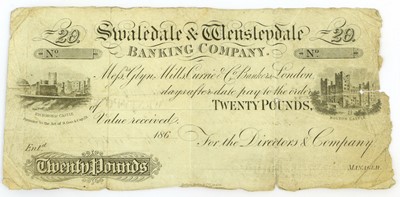 20. Swaledale & Wensleydale 20.
No BANKING COMPANY. No
Messrs Glyn, Mills, Currie & Co. Bankers, London,
days after date pay to the order
of TWENTY POUNDS,
Value received. 186
For the Directors & Company
Entd.
Twenty Pounds MANAGER